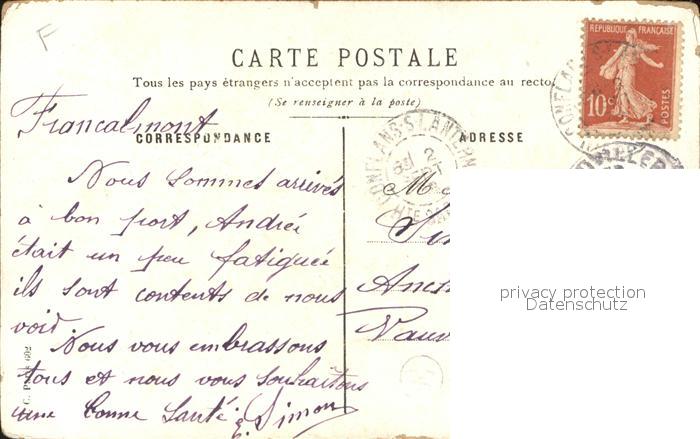 F
CARTE POSTALE
Tous les pays étrangers n'acceptent pas la correspondance au recto
(Se renseigner à la poste)
REPUBLIQUE FRANÇAISE
10c
POSTES
Francalmont
CORRESPONDANCE
ADRESSE
CONFLANS S LANTERN
Nous sommes arrivés
à bon port, Andrée
était un peu fatiguée
ils sont contents de nous
voir.
Nous vous embrassons
tous et nous vous souhaitons
une bonne santé. E. Simon
M
Sim
Anc
Vauv
privacy protection
Datenschutz